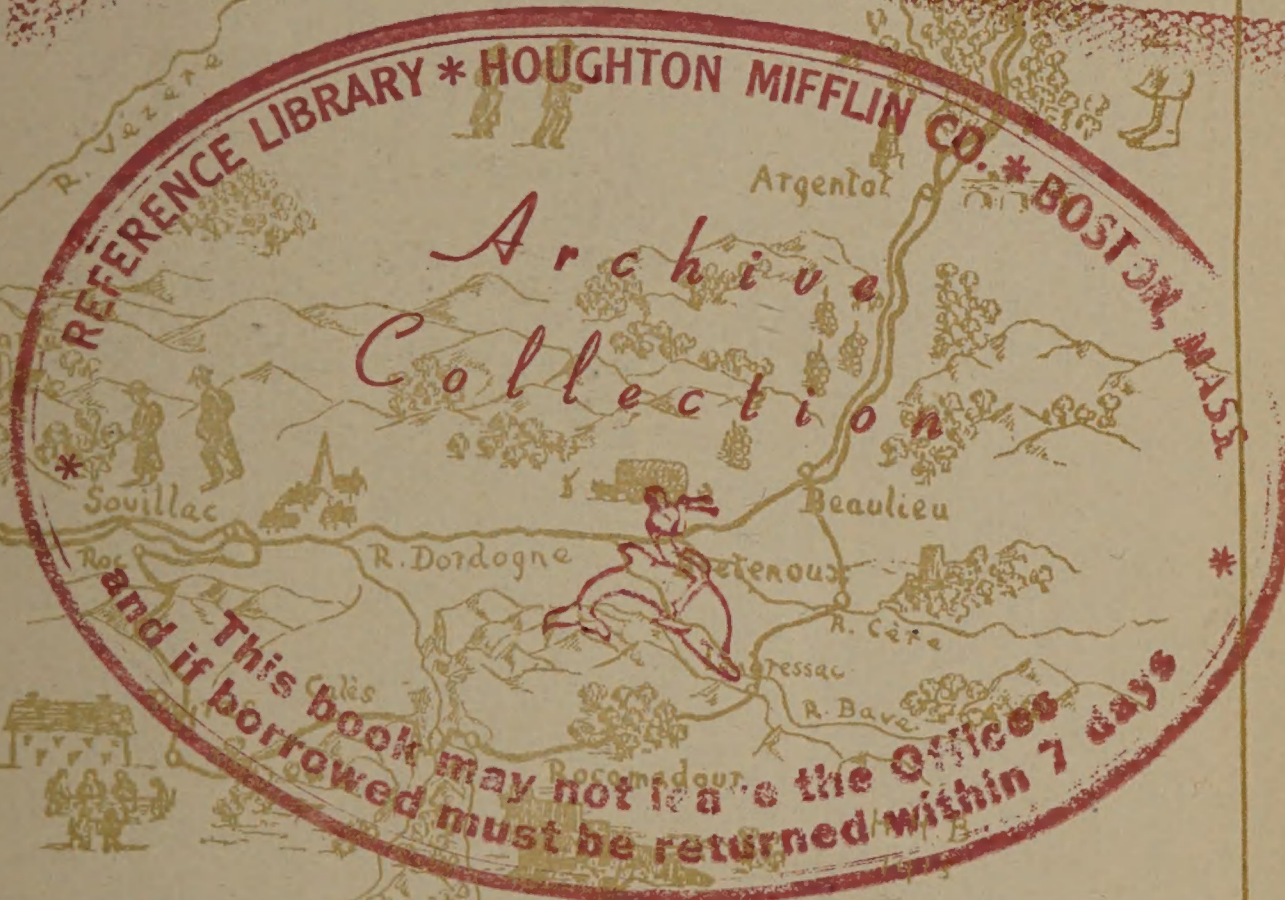 * REFERENCE LIBRARY * HOUGHTON MIFFLIN CO. * BOSTON, MASS. *
Archive
Collection
This book may not leave the Offices
and if borrowed must be returned within 7 days
R. Vezère
Argentat
Souillac
Beaulieu
R. Dordogne
Bretenoux
R. Cère
R. Bave
Calès
Rocamadour